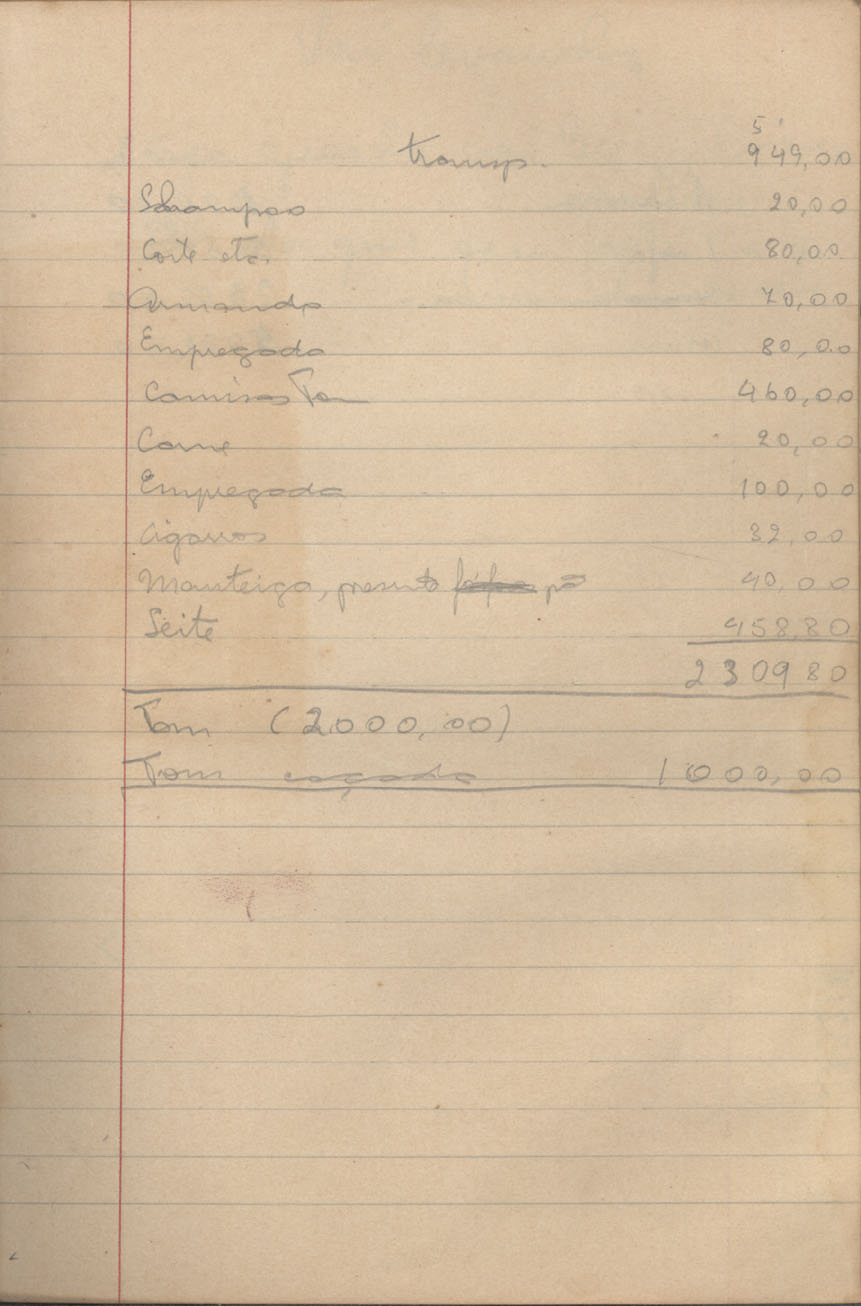 5 1
transp. 949,00
Shampoo 20,00
Corte etc. 80,00
Armando 70,00
Empregada 80,00
Camisas Tom 460,00
Carne 20,00
Empregada 100,00
Cigarros 32,00
Manteiga, presunto pão 40,00
Leite 458,80
2309 80
Tom (2.000,00)
Tom caçada 1000,00